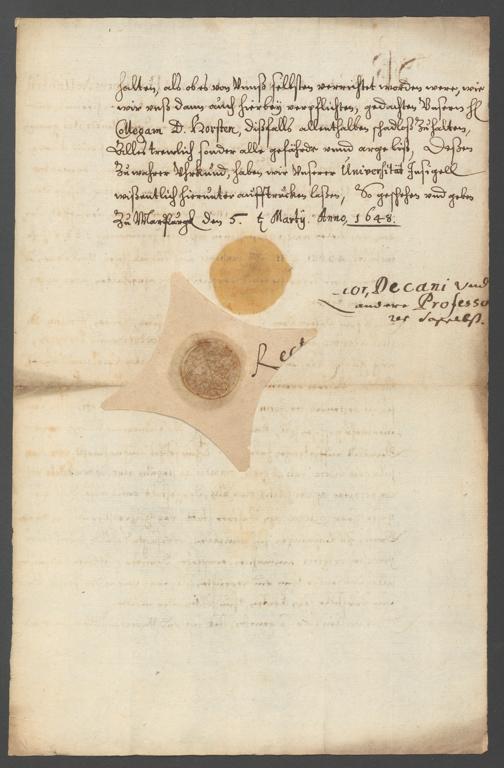 halten, als ob es von Unnß selbsten verrichtet worden were, wie
wir unß dann auch hierbey verpflichten, gedachten Unsern H.
Collegam D. Horsten, dißfalls allenthalben schadloß zu halten,
Alles trewlich sonder alle gefährde unnd argelist, Deßen
Zu wahrer Uhrkund, haben wir Unserer Universität Insigell
wißentlich hierunter aufftrüken laßen, So geschehen und geben
Zu Marpurgk den 5. t. Martij Anno, 1648.
Rect
-tor, Decani und
andere Professo
res daselbst.